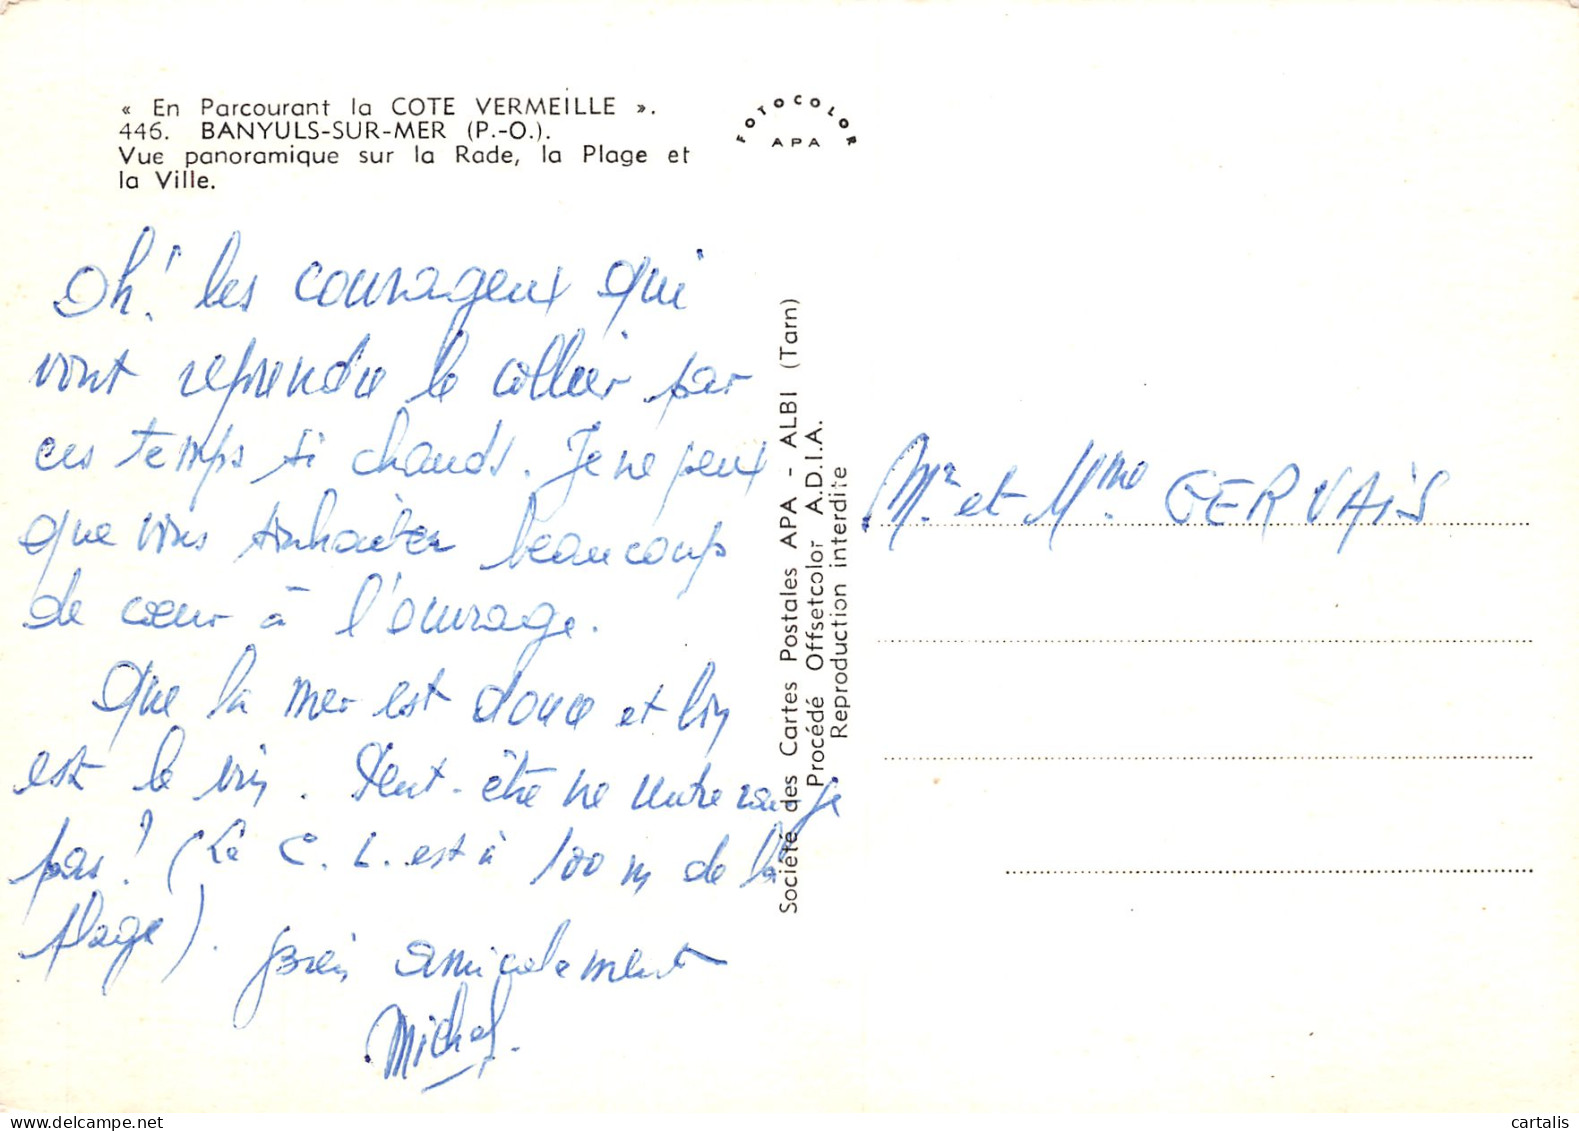 « En Parcourant la COTE VERMEILLE ».
446. BANYULS-SUR-MER (P.-O.).
Vue panoramique sur la Rade, la Plage et
la Ville.
FOTOCOLOR
APA
Oh! les courageux qui
vont reprendre le collier par
ces temps si chauds. Je ne peux
que vous souhaiter beaucoup
de cœur à l'ouvrage.
Que la mer est douce et bon
est le vin. Peut-être ne rentrerai-je
pas! (Le C.L. est à 100 m de la
plage). Bien amicalement
Michel.
Société des Cartes Postales APA - ALBI (Tarn)
Procédé Offsetcolor A.D.I.A.
Reproduction interdite
Mr. et Mme. GERVAIS
cartalis